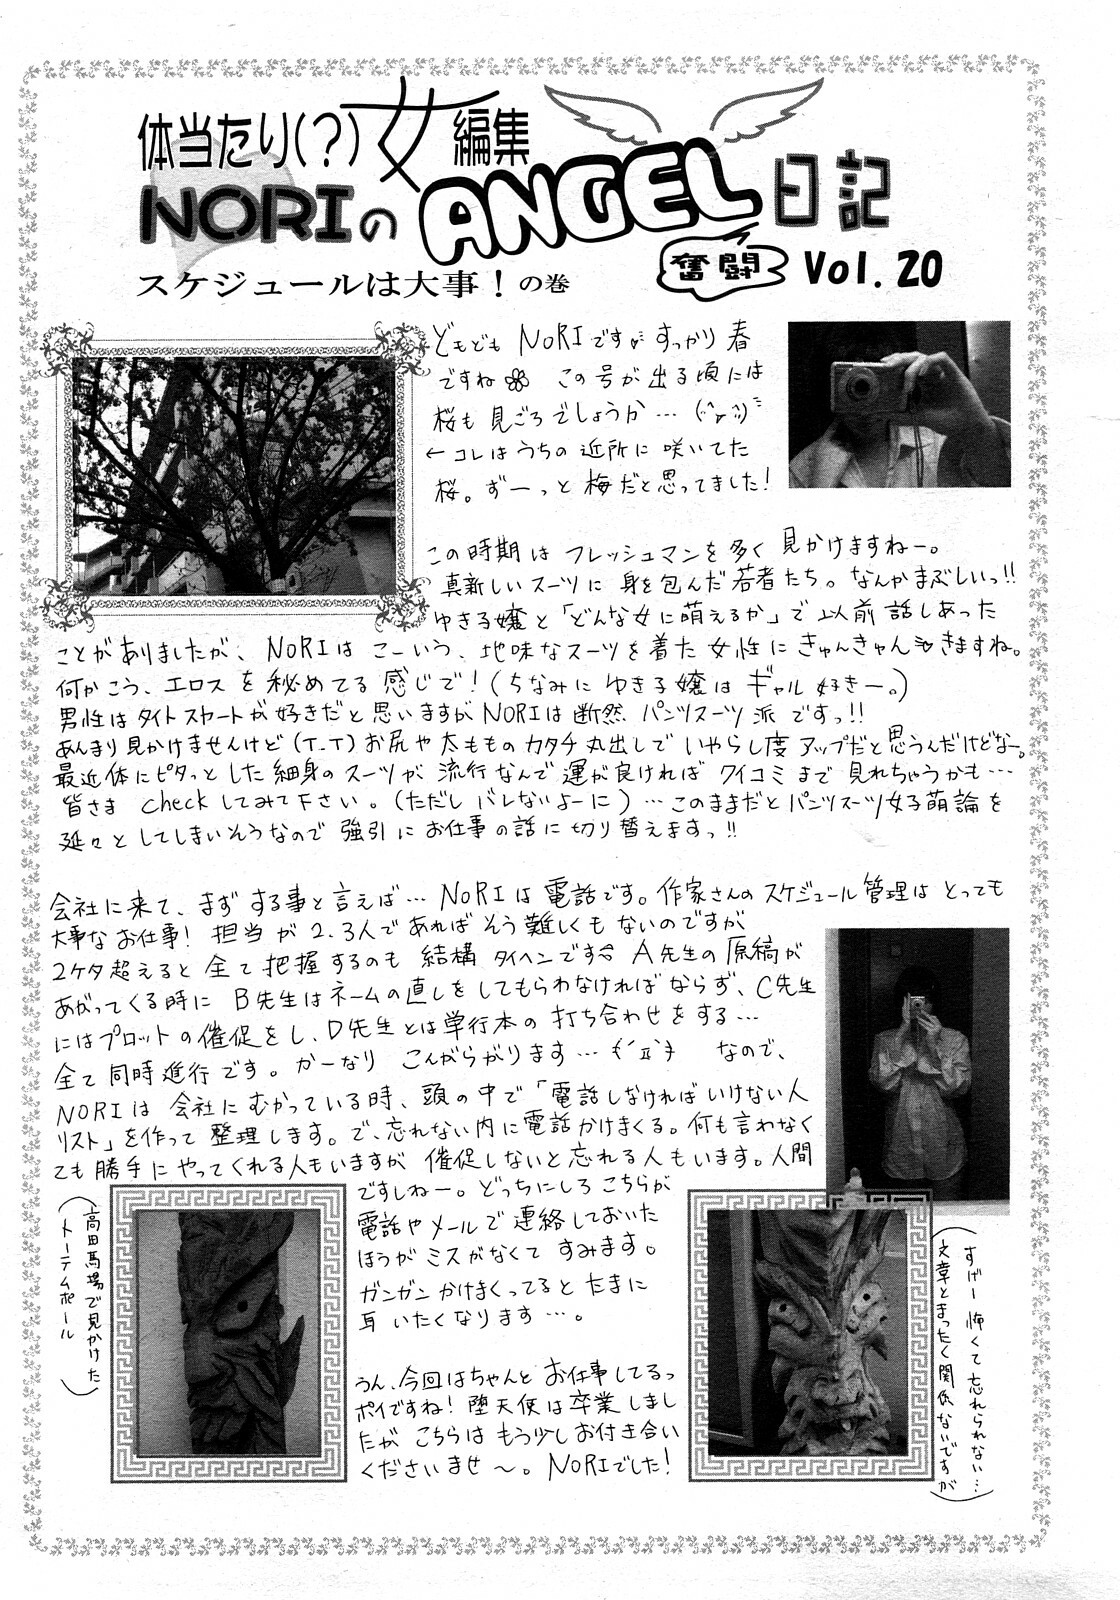 体当たり(?)女編集
NORIのANGEL日記
奮闘 Vol.20
スケジュールは大事!の巻
どもども NORIです すっかり春
ですね この号が出る頃には
桜も見ごろでしょうか…
←コレはうちの近所に咲いてた
桜。ずーっと梅だと思ってました!
この時期はフレッシュマンを多く見かけますねー。
真新しいスーツに身を包んだ若者たち。なんかまぶしいっ!!
ゆき子嬢と「どんな女に萌えるか」で以前話しあった
ことがありましたが、NORIはこーいう、地味なスーツを着た女性にきゅんきゅんきますね。
何かこう、エロスを秘めてる感じで!(ちなみにゆき子嬢はギャル好きー。)
男性はタイトスカートが好きだと思いますがNORIは断然パンツスーツ派ですっ!!
あんまり見かけませんけど(T_T)お尻や太もものカタチ丸出しでいやらし度アップだと思うんだけどなー。
最近体にピタっとした細身のスーツが流行なんで運が良ければクイコミまで見れちゃうかも…
皆さまcheckしてみて下さい。(ただしバレないよーに)…このままだとパンツスーツ女子萌論を
延々としてしまいそうなので強引にお仕事の話に切り替えますっ!!
会社に来て、まずする事と言えば…NORIは電話です。作家さんのスケジュール管理はとっても
大事なお仕事!担当が2、3人であればそう難しくもないのですが
2ケタ超えると全て把握するのも結構タイヘンです A先生の原稿が
あがってくる時にB先生はネームの直しをしてもらわなければならず、C先生
にはプロットの催促をし、D先生とは単行本の打ち合わせをする…
全て同時進行です。かーなりこんがらがります… なので、
NORIは会社にむかっている時、頭の中で「電話しなければいけない人
リスト」を作って整理します。で、忘れない内に電話かけまくる。何も言わなく
ても勝手にやってくれる人もいますが催促しないと忘れる人もいます。人間
ですしねー。どっちにしろこちらが
電話やメールで連絡しておいた
ほうがミスがなくてすみます。
ガンガンかけまくってるとたまに
耳いたくなります…。
うん、今回はちゃんとお仕事してるっ
ポイですね!堕天使は卒業しまし
たがこちらはもう少しお付き合い
くださいませ〜。NORIでした!
(高田馬場で見かけた
トーテムポール)
(すげー怖くて忘れられない…
文章とまったく関係ないですが)